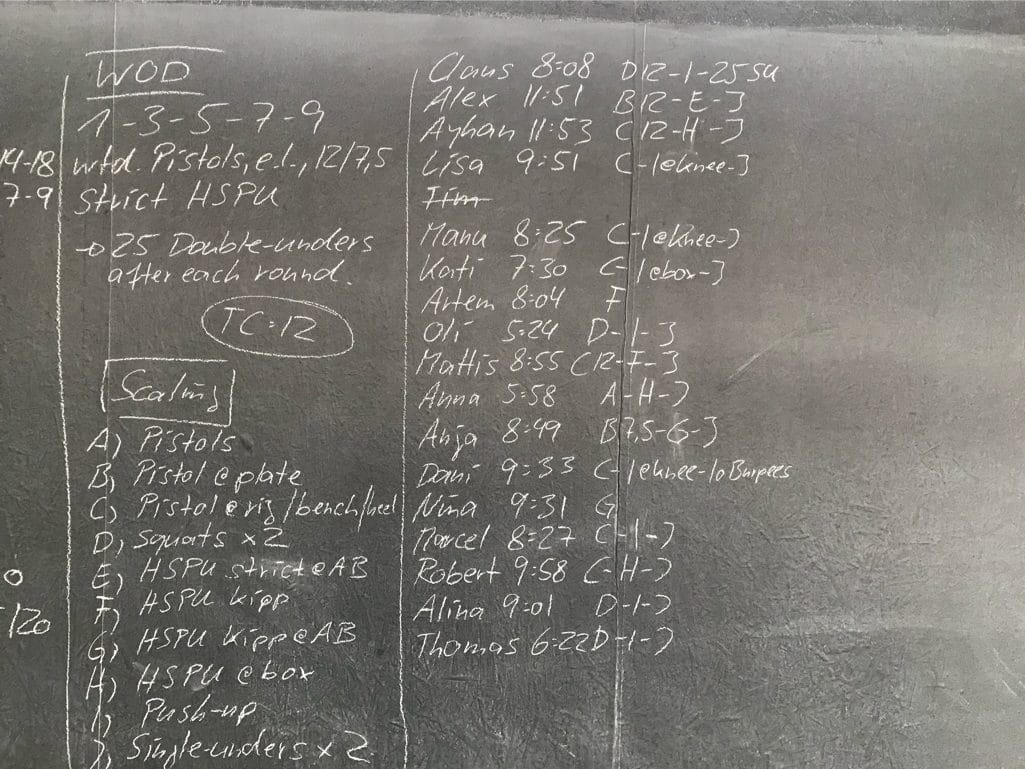 WOD
1-3-5-7-9
14-18 wtd. Pistols, e.l., 12/7,5
7-9 strict HSPU
→ 25 Double-unders
after each round.
TC=12
Scaling
A) Pistols
B) Pistol @ plate
C) Pistol @ rig/bench/heel
D) Squats x2
E) HSPU strict @ AB
0
F) HSPU kipp
-120
G) HSPU kipp @ AB
H) HSPU @ box
I) Push-up
J) Single-unders x 2
Claus 8:08 D12-I-25SU
Alex 11:51 B12-E-J
Ayhan 11:53 C12-H-J
Lisa 9:51 C-I@knee-J
Manu 8:25 C-I@knee-J
Kati 7:30 C-I@box-J
Artem 8:04 F
Oli 5:24 D-I-J
Mattis 8:55 C12-F-J
Anna 5:58 A-H-J
Anja 8:49 B7,5-G-J
Dani 9:33 C-I@knee-10Burpees
Nina 9:31 G
Marcel 8:27 C-I-J
Robert 9:58 C-H-J
Alina 9:01 D-I-J
Thomas 6:22 D-I-J